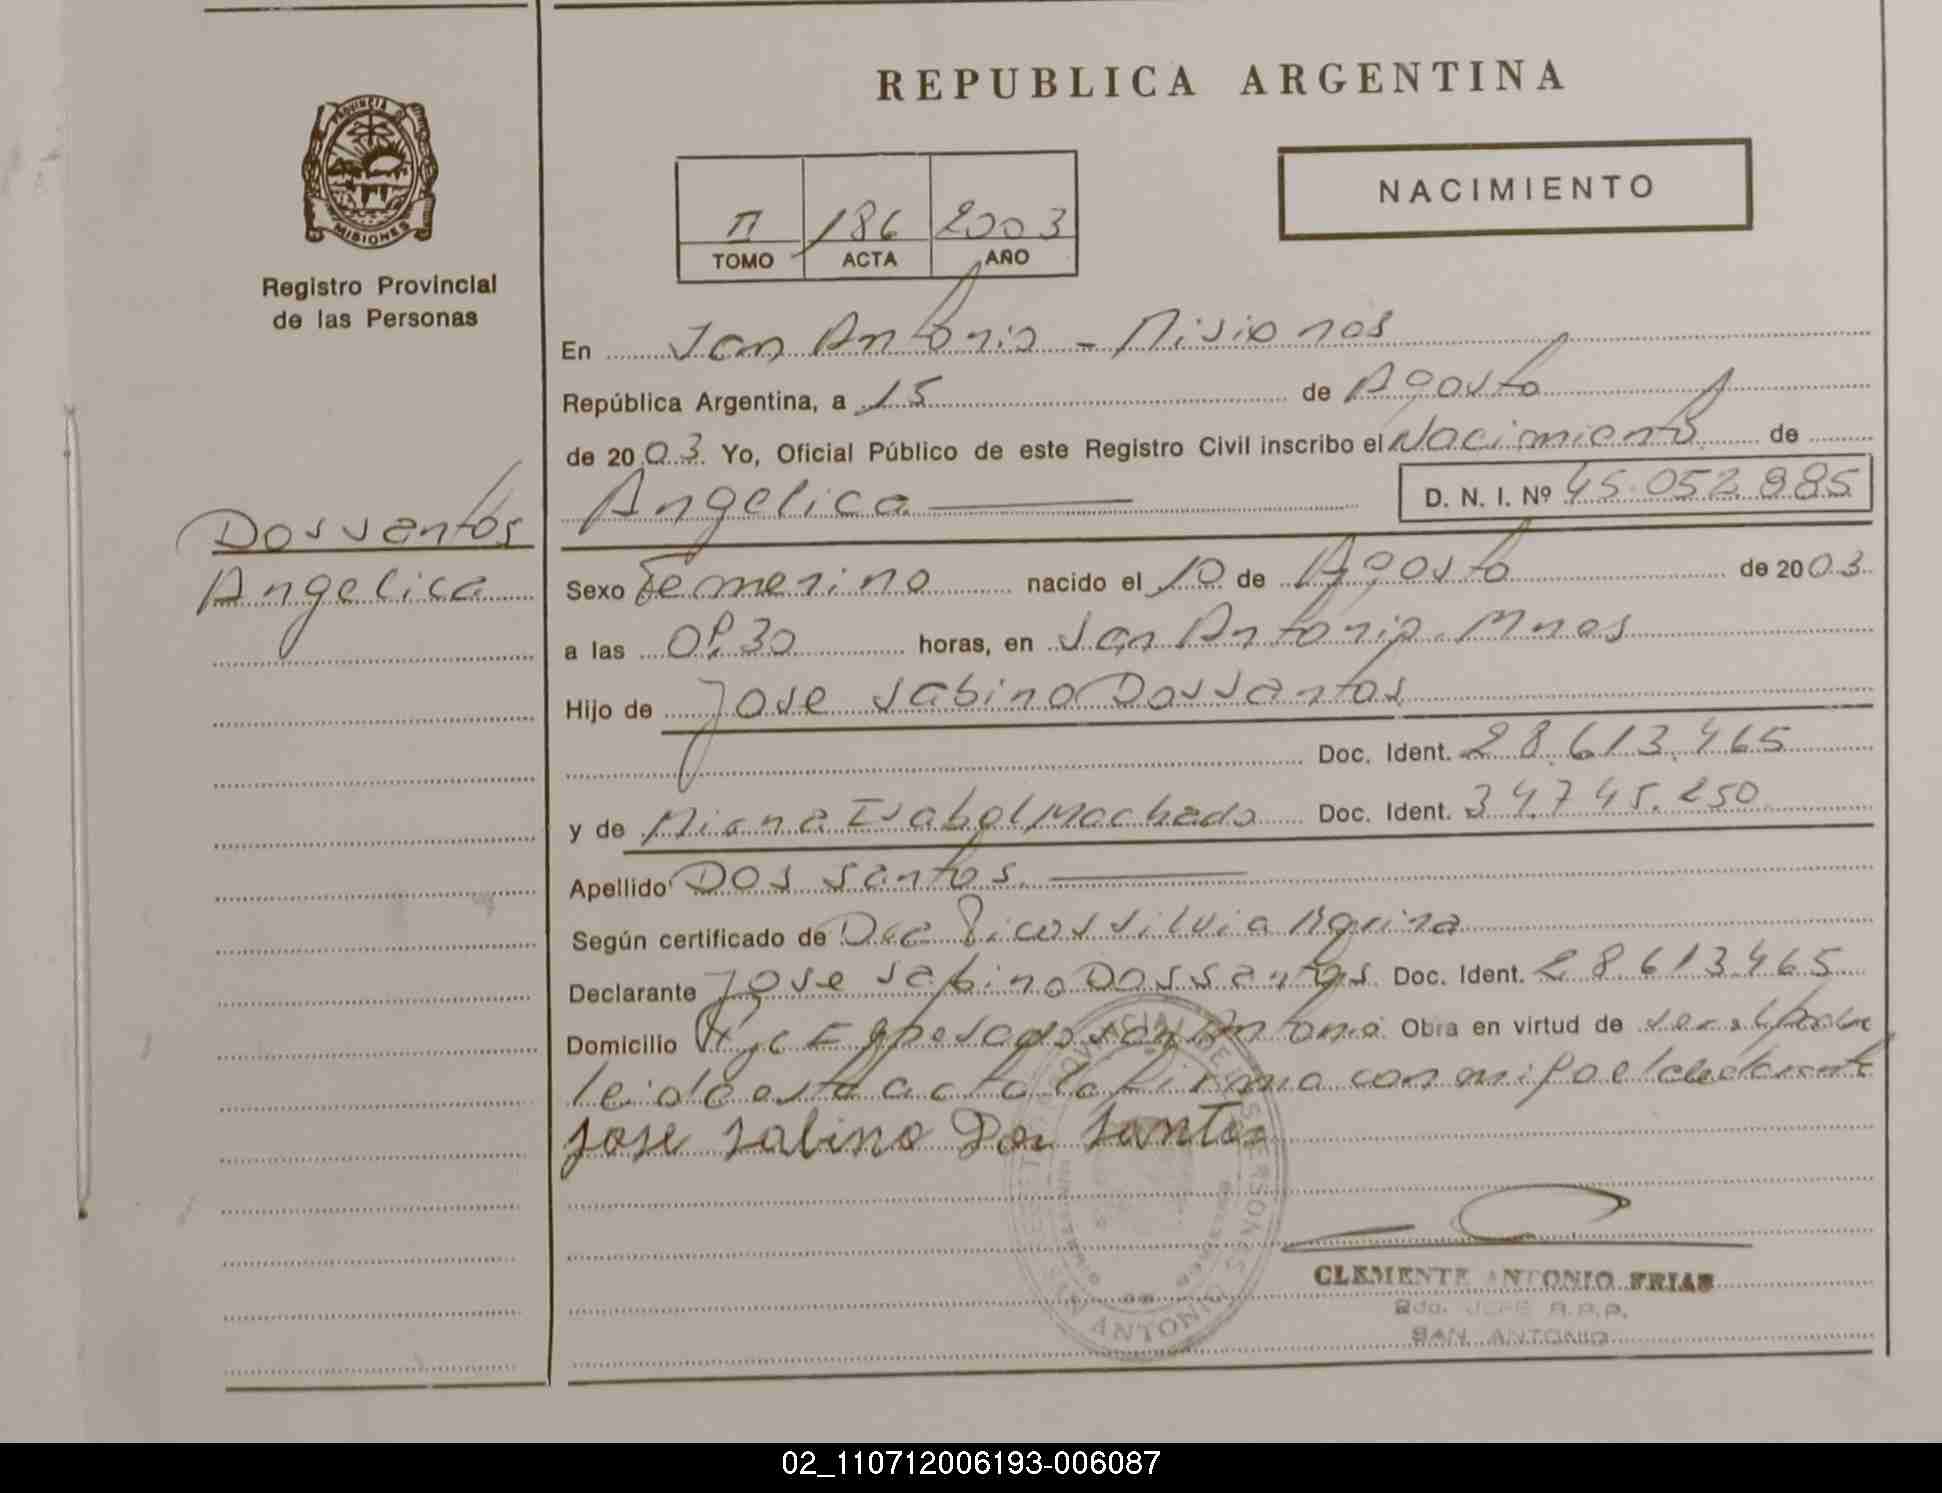 REPUBLICA ARGENTINA
NACIMIENTO
II 186 2003
TOMO ACTA AÑO
PROVINCIA DE
MISIONES
Registro Provincial
de las Personas
Dossantos
Angelica
En San Antonio - Misiones
República Argentina, a 15 de Agosto
de 2003. Yo, Oficial Público de este Registro Civil inscribo el Nacimiento de
Angelica D. N. I. Nº 45.052.885
Sexo Femenino nacido el 10 de Agosto de 2003
a las 0 30 horas, en San Antonio. Mnes
Hijo de Jose Sabino Dossantos
Doc. Ident. 28.613.465
y de Isabel Machado Doc. Ident. 34.745.250
Apellido Dos santos
Según certificado de Silvia
Declarante Jose Sabino Dos santos. Doc. Ident. 28613465
Domicilio San Antonio. Obra en virtud de ser el padre
leido esta acta la firma con migo el declarante
Jose Sabino Dos Santos
SAN ANTONIO
CLEMENTE ANTONIO FRIAS
2do. JEFE R.P.P.
SAN ANTONIO
02_110712006193-006087